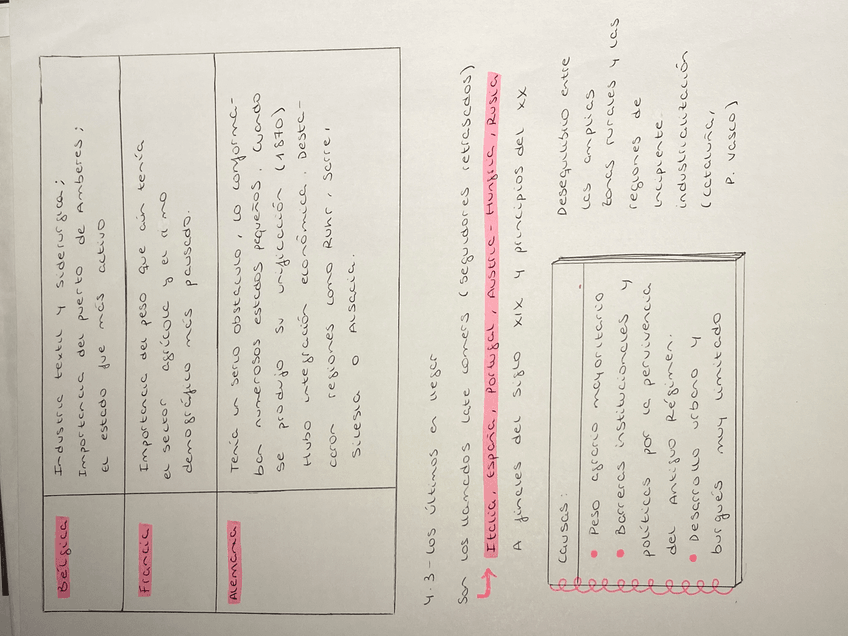 Bélgica
Industria textil y siderurgica;
Importancia del puerto de Amberes;
el estado fue más activo
Francia
Importancia del peso que aún tenía
el sector agrícola y el ritmo
demográfico más pausado.
Alemania
Tenía un serio obstáculo, lo conforma-
ban numerosos estados pequeños. Cuando
se produjo su unificación (1870)
Hubo integración económica. Desta-
caron regiones como Ruhr, Sarre,
Silesia o Alsacia.
4.3- Los últimos en llegar
Son los llamados late comers (seguidores retrasados)
Italia, España, Portugal, Austria-Hungría, Rusia
A finales del siglo XIX y principios del XX
Causas:
Peso agrario mayoritario
Barreras institucionales y
políticas por la pervivencia
del Antiguo Régimen.
Desarrollo urbano y
burgués muy limitado
Desequilibrio entre
las amplias
zonas rurales y las
regiones de
incipiente
industrialización
(Cataluña,
P. Vasco)